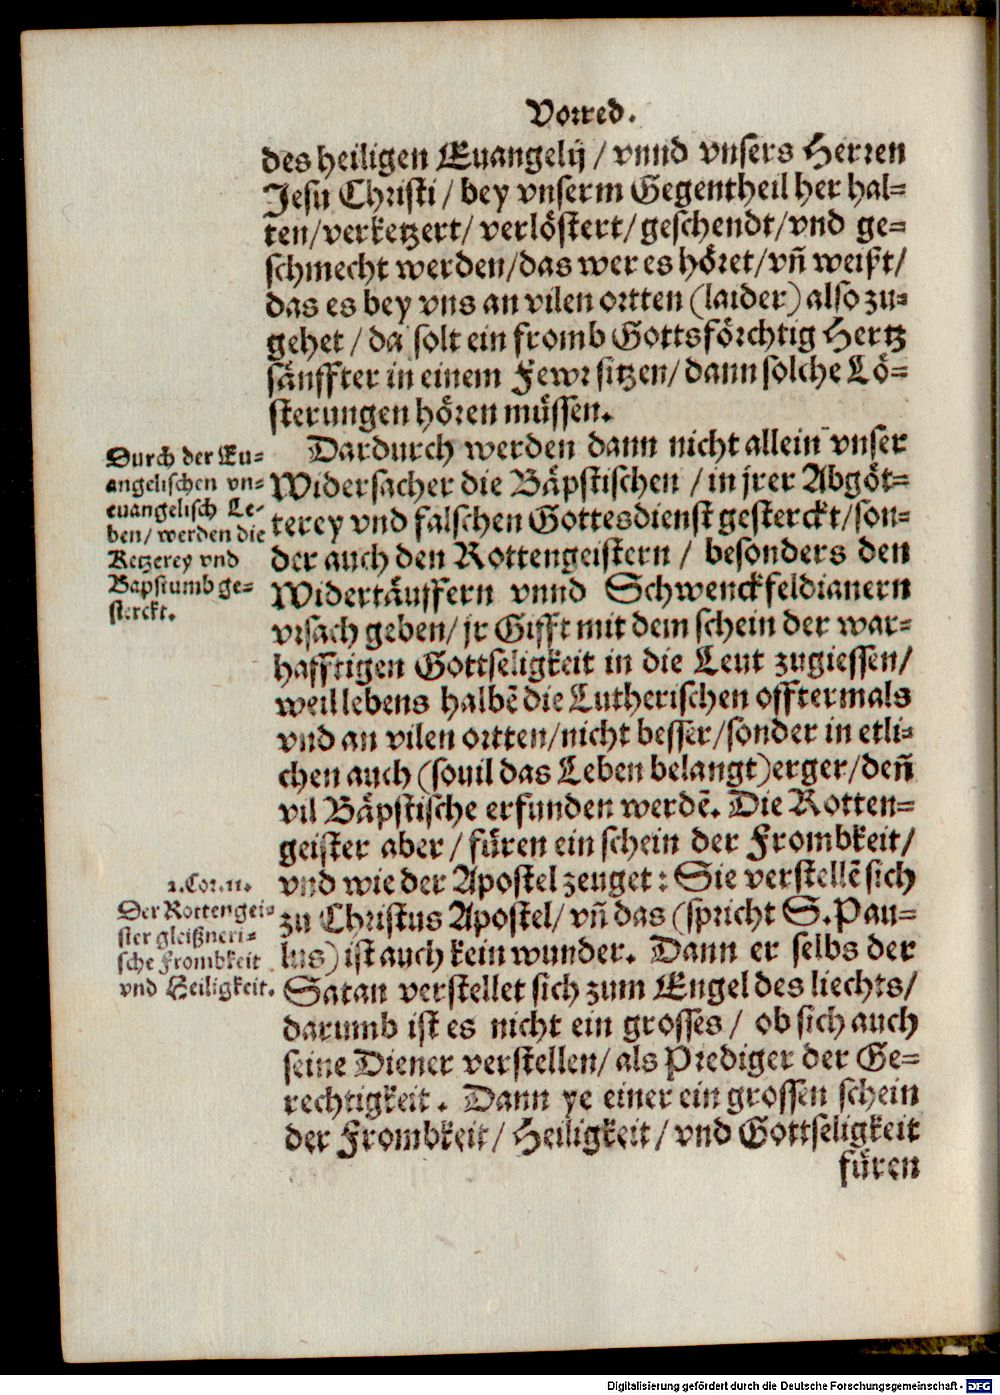 Vorred.
des heiligen Euangelij / vnnd vnsers Herren
Jesu Christi / bey vnserm Gegentheil her hal-
ten/verketzert/ verlöstert/ geschendt/vnd ge-
schmecht werden/das wer es höret/vñ weißt/
das es bey vns an vilen ortten (laider) also zu-
gehet / da solt ein fromb Gottsförchtig Hertz
sänffter in einem Fewr sitzen/ dann solche Lö-
sterungen hören müssen.
Dardurch werden dann nicht allein vnser
Widersacher die Bäpstischen / in jrer Abgöt-
terey vnd falschen Gottesdienst gesterckt/son-
der auch den Rottengeistern / besonders den
Widertäuffern vnnd Schwenckfeldianern
vrsach geben/ jr Gifft mit dem schein der war-
hafftigen Gottseligkeit in die Leut zugiessen/
weil lebens halbẽ die Lutherischen offtermals
vnd an vilen ortten/nicht besser/sonder in etli-
chen auch (souil das Leben belangt)erger/deñ
vil Bäpstische erfunden werdẽ. Die Rotten-
geister aber / füren ein schein der Frombkeit/
vnd wie der Apostel zeuget: Sie verstellẽ sich
zu Christus Apostel/ vñ das (spricht S. Pau-
lus) ist auch kein wunder. Dann er selbs der
Satan verstellet sich zum Engel des liechts/
darumb ist es nicht ein grosses / ob sich auch
seine Diener verstellen/ als Prediger der Ge-
rechtigkeit. Dann ye einer ein grossen schein
der Frombkeit/ Heiligkeit/ vnd Gottseligkeit
füren
Durch der Eu-
angelischen vn-
euangelisch Le-
ben/ werden die
Ketzerey vnd
Bapstumb ge-
sterckt.
2. Cor. 11.
Der Rottengei-
ster gleißneri-
sche Frombkeit
vnd Heiligkeit.
Digitalisierung gefördert durch die Deutsche Forschungsgemeinschaft - DFG